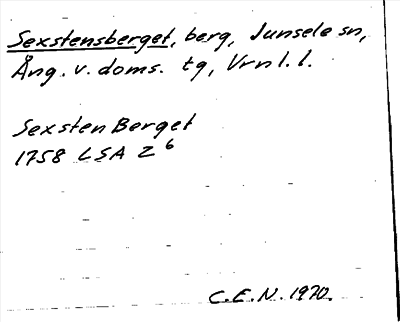 Sexstensberget, berg, Junsele sn,
Ång. v. doms. tg, Vrn l. l.
Sexsten Berget
1758 LSA Z 6
C.E.N. 1970.